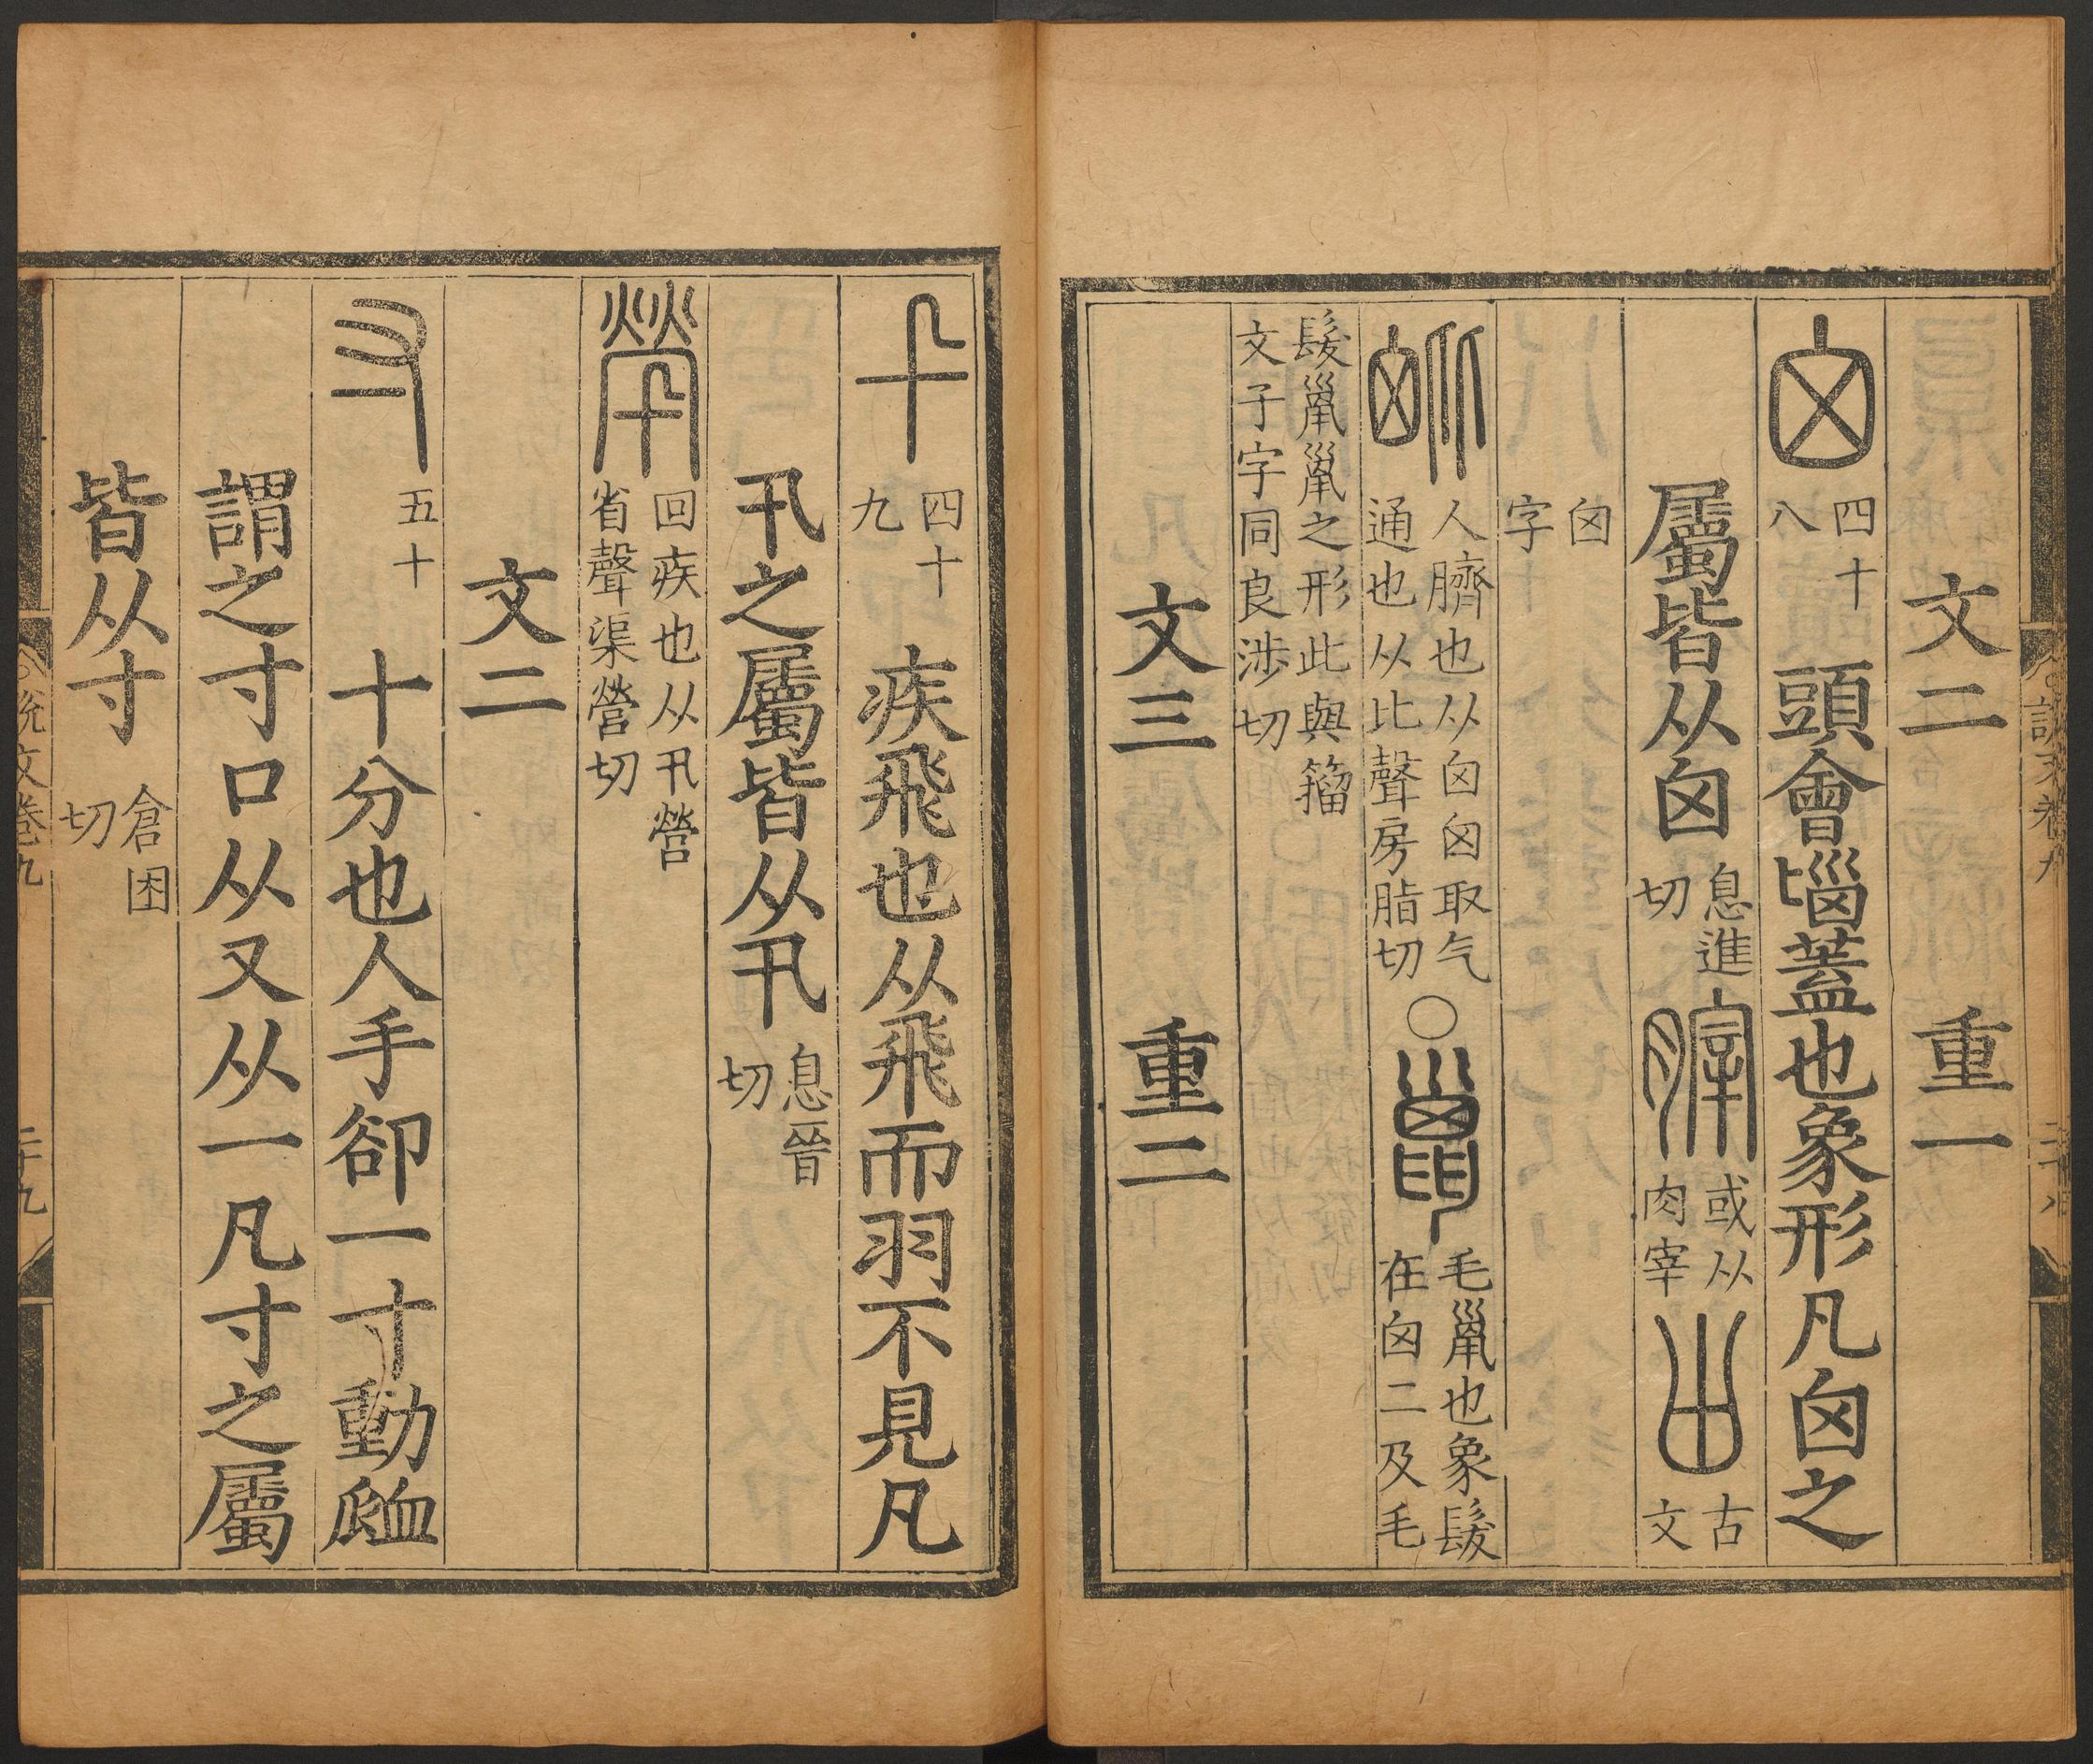 文二　重一
囟 四十八 頭會𡿺蓋也象形凡囟之
屬皆从囟 息進切 膟 或从肉宰 𠙷 古文
囟字
𣬉 人臍也从囟囟取气通也从比聲房脂切○巤 毛巤也象髮在囟上及毛
髮巤巤之形此與籀文子字同良涉切
文三　重二
卂 四十九 疾飛也从飛而羽不見凡
卂之屬皆从卂 息晉切
煢 回疾也从卂營省聲渠營切
文二
寸 五十 十分也人手卻一寸動𧖴
謂之寸口从又从一凡寸之屬
皆从寸 倉困切
說文卷九
二十九